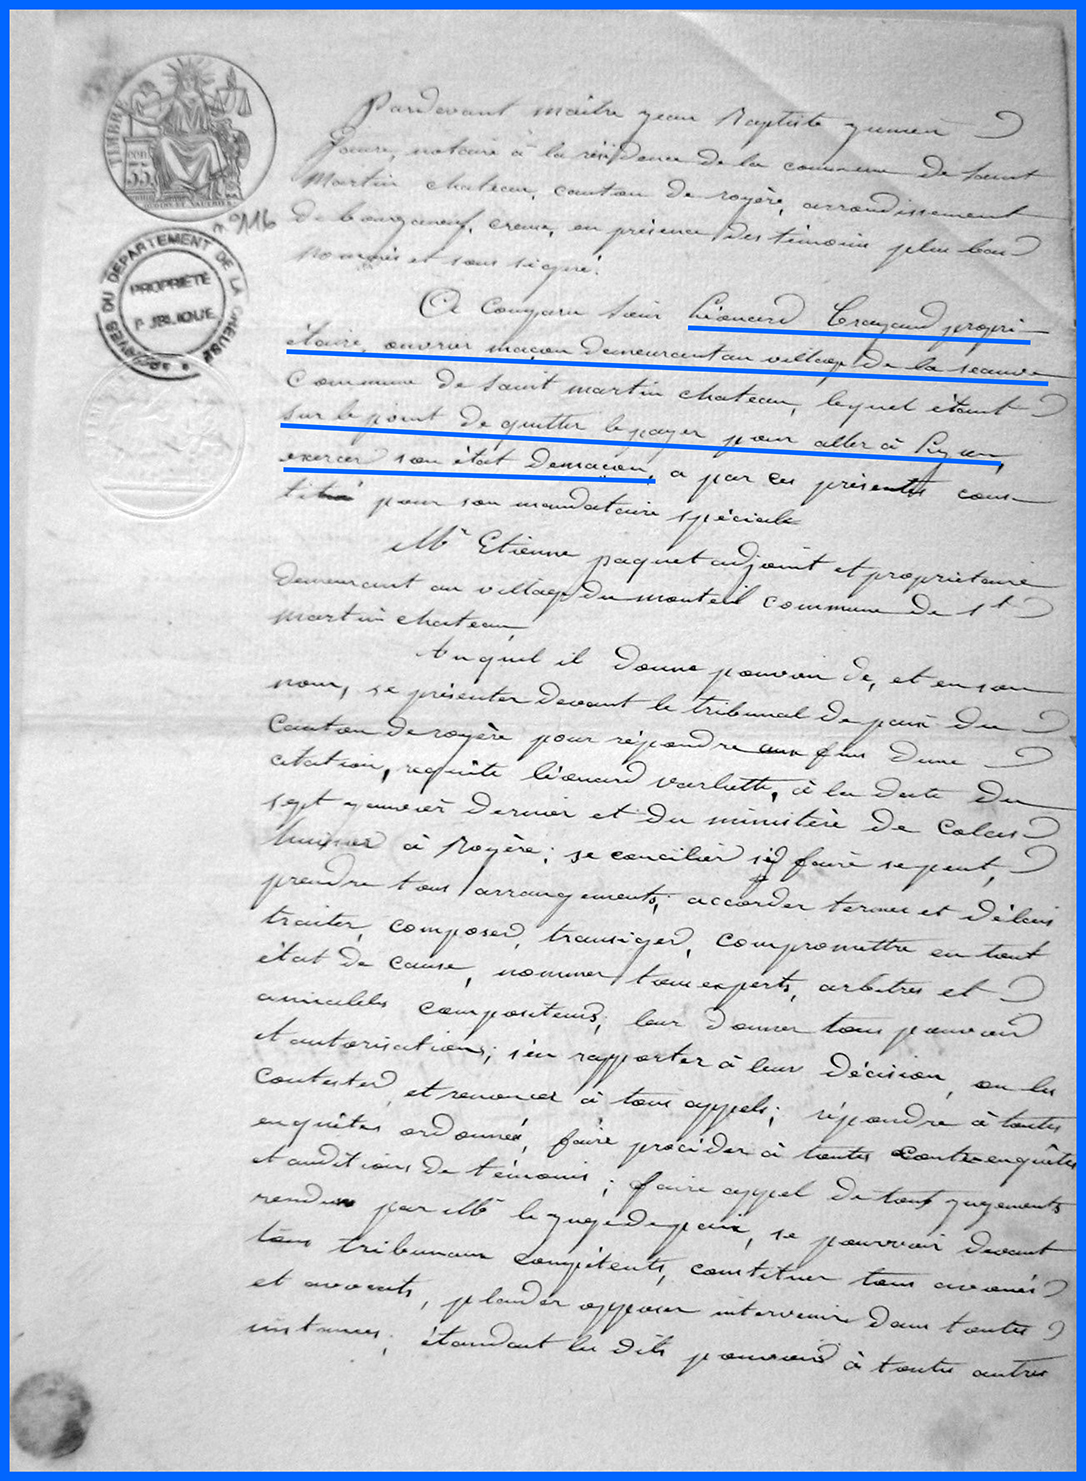 TIMBRE
35
n° 916
ARCHIVES DU DEPARTEMENT DE LA CREUSE
PROPRIÉTÉ
PUBLIQUE
Pardevant maitre jean Baptiste
notaire à la résidence de la commune de Saint
Martin chateau, canton de royère, arrondissement
de bourganeuf, creuse, en présence des témoins plus bas
nommés et sous signé.
A comparu sieur Léonard propri-
étaire, ouvrier maçon demeurant au village de la
commune de saint martin chateau, lequel étant
sur le point de quitter le payer pour aller à Lyon,
exercer son état de maçon, a par ces présentes cons-
titué pour son mandataire spéciale
Mr Etienne paquet adjoint et propriétaire
demeurant au village du monteil commune de st
martin chateau,
Auquel il donne pouvoir de, et en son
nom, se présenter devant le tribunal de paix du
canton de royère pour répondre aux fins dune
citation, requête léonard, à la date du
sept janvier dernier et du ministère de
huissier à Royère; se concilier si faire se peut,
prendre tous arrangements, accorder termes et délais
traiter, composer, transiger, compromettre en tout
état de cause, nommer tous experts, arbitres et
amiables compositeurs, leur donner tous pouvoirs
et autorisations; s'en rapporter à leur décision, ou les
contester, et renoncer à tous appels; répondre à toutes
enquêtes ordonnés, faire procéder à toutes contre-enquêtes
et auditions de témoins; faire appel de tous jugements
rendus par Mr le juge de paix, se pourvoir devant
tous tribunaux compétents, constituer tous avoués
et avocats, plaider opposer intervenir dans toutes
instances; étandant les dits pouvoirs à toutes autres